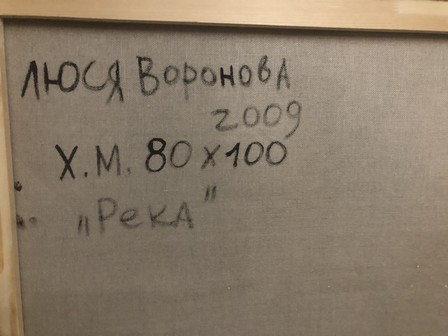 Люся Воронова
2009
Х.М. 80х100
„Река"